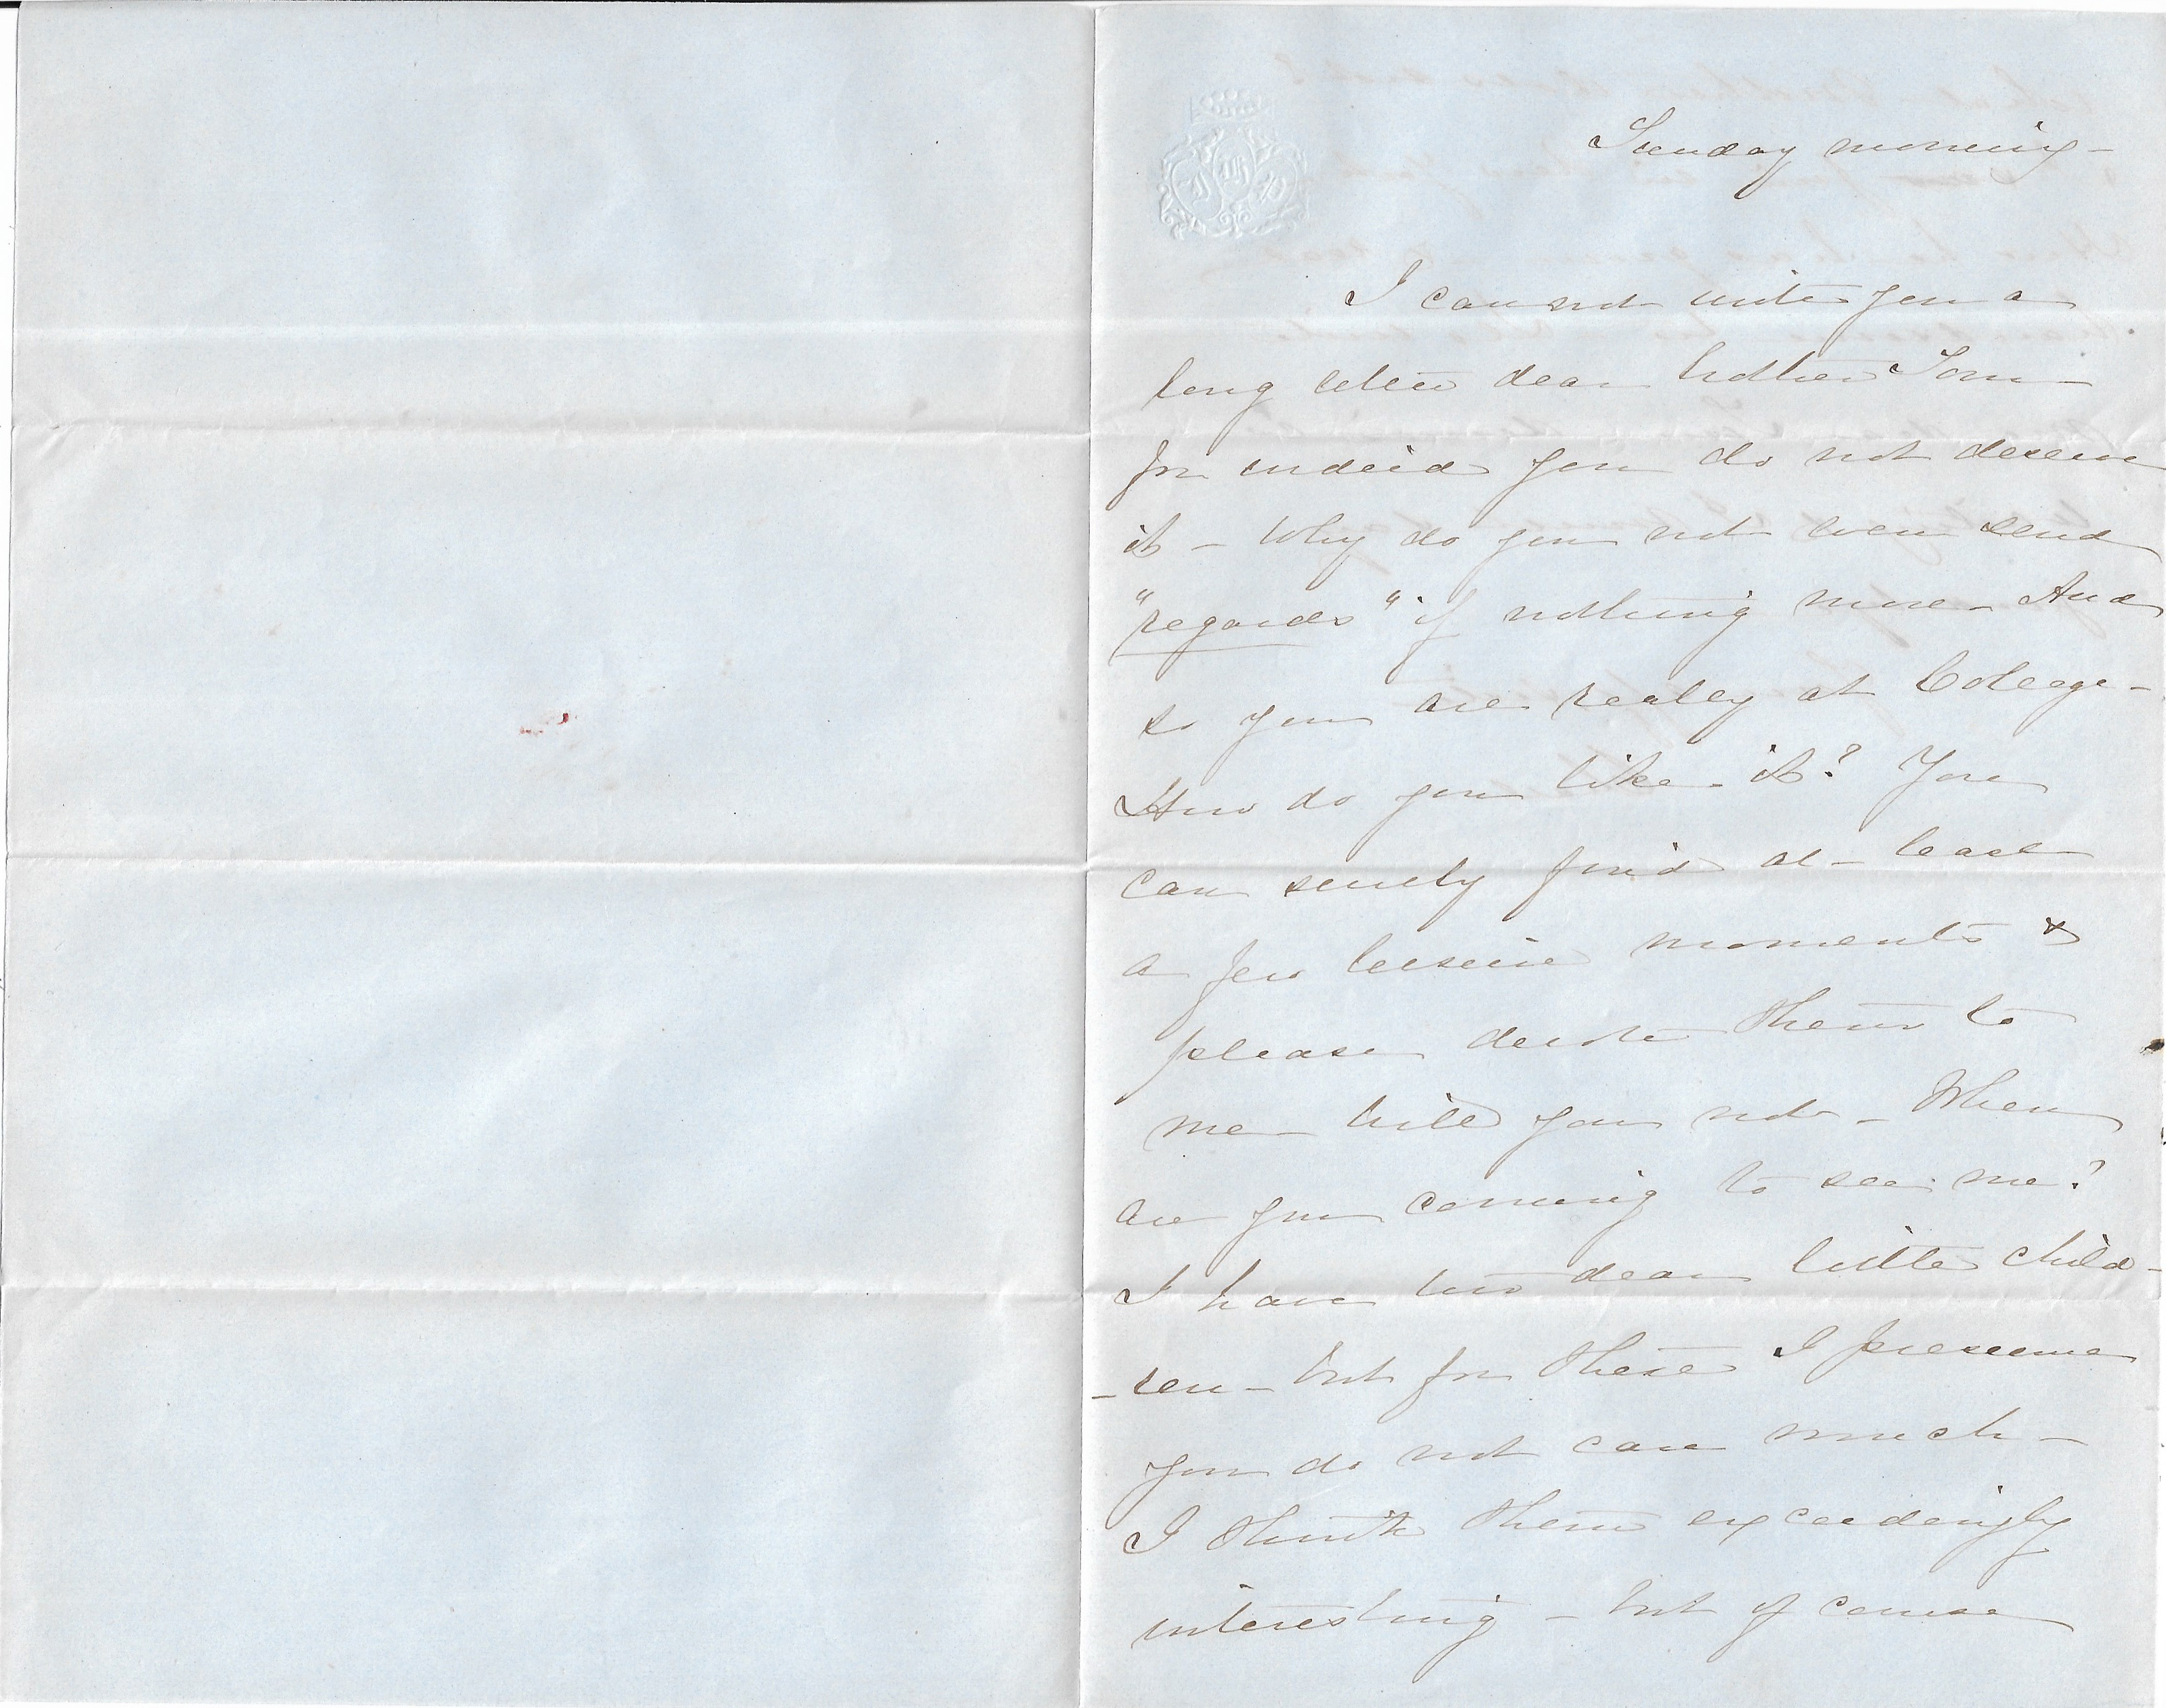 Sunday morning -
I can not write you a
long letter dear brother Tom -
for indeed you do not deserve
it - Why do you not even send
"regards" if nothing more - And
so you are really at College -
How do you like it? You
can surely find at - least
a few leisure moments &
please devote them to
me - will you not - When
are you coming to see me?
I have two dear little child-
-ren - but for these I presume
you do not care much -
I think them exceedingly
interesting - but of course